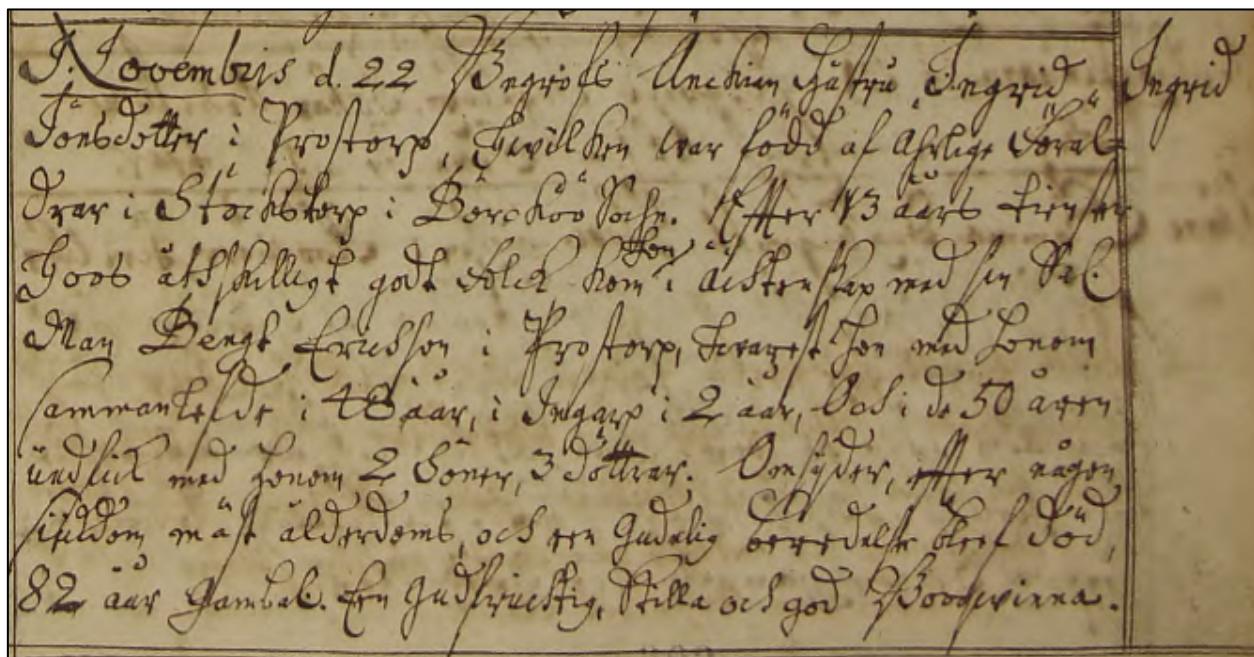 J. Novembris d. 22 Begrofs Änckian Hustru Ingrid Ingrid
Jönsdotter i Prostorp, Hwilken war född af Ährlige Föräl-
drar i Stockstorp i Börckiö Sochn. Effter 13 åårs tienster
Hoos åthskilligt godt Folck kom hon i ächtenskap med sin Sal.
Man Bengt Ericksson i Prostorp, hwarest hon med honom
sammanlefde i 48 åår, i Ingarp i 2 åår, Och i de 50 åren
undfick med honom 2 Söner, 3 döttrar. Omsyder, effter någon
siukdom mäst ålderdoms, och een Gudelig beredelse bleef död,
82 åår Gammal. Een Gudfruchtig, Stilla och god